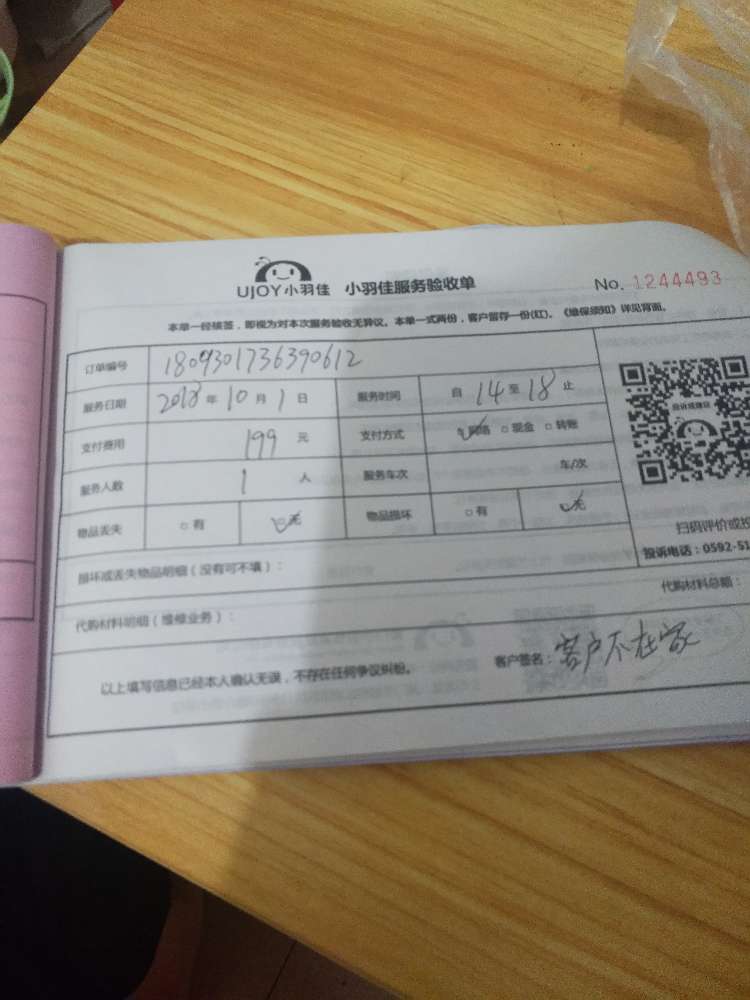 UJOY小羽佳 小羽佳服务验收单 No. 1244493
本单一经核签，即视为对本次服务验收无异议。本单一式两份，客户留存一份(红)。《维保须知》详见背面。
订单编号 1809301736390612
服务日期 2018年10月1日 服务时间 自14至18止
支付费用 199元 支付方式 网络 □现金 □转账
服务人数 1人 服务车次 车/次
物品丢失 □有 □无 物品损坏 □有 □无
扫码评价或投
投诉电话：0592-51
损坏或丢失物品明细（没有可不填）：
代购材料明细（维修业务）： 代购材料总额：
以上填写信息已经本人确认无误，不存在任何争议纠纷。 客户签名：客户不在家